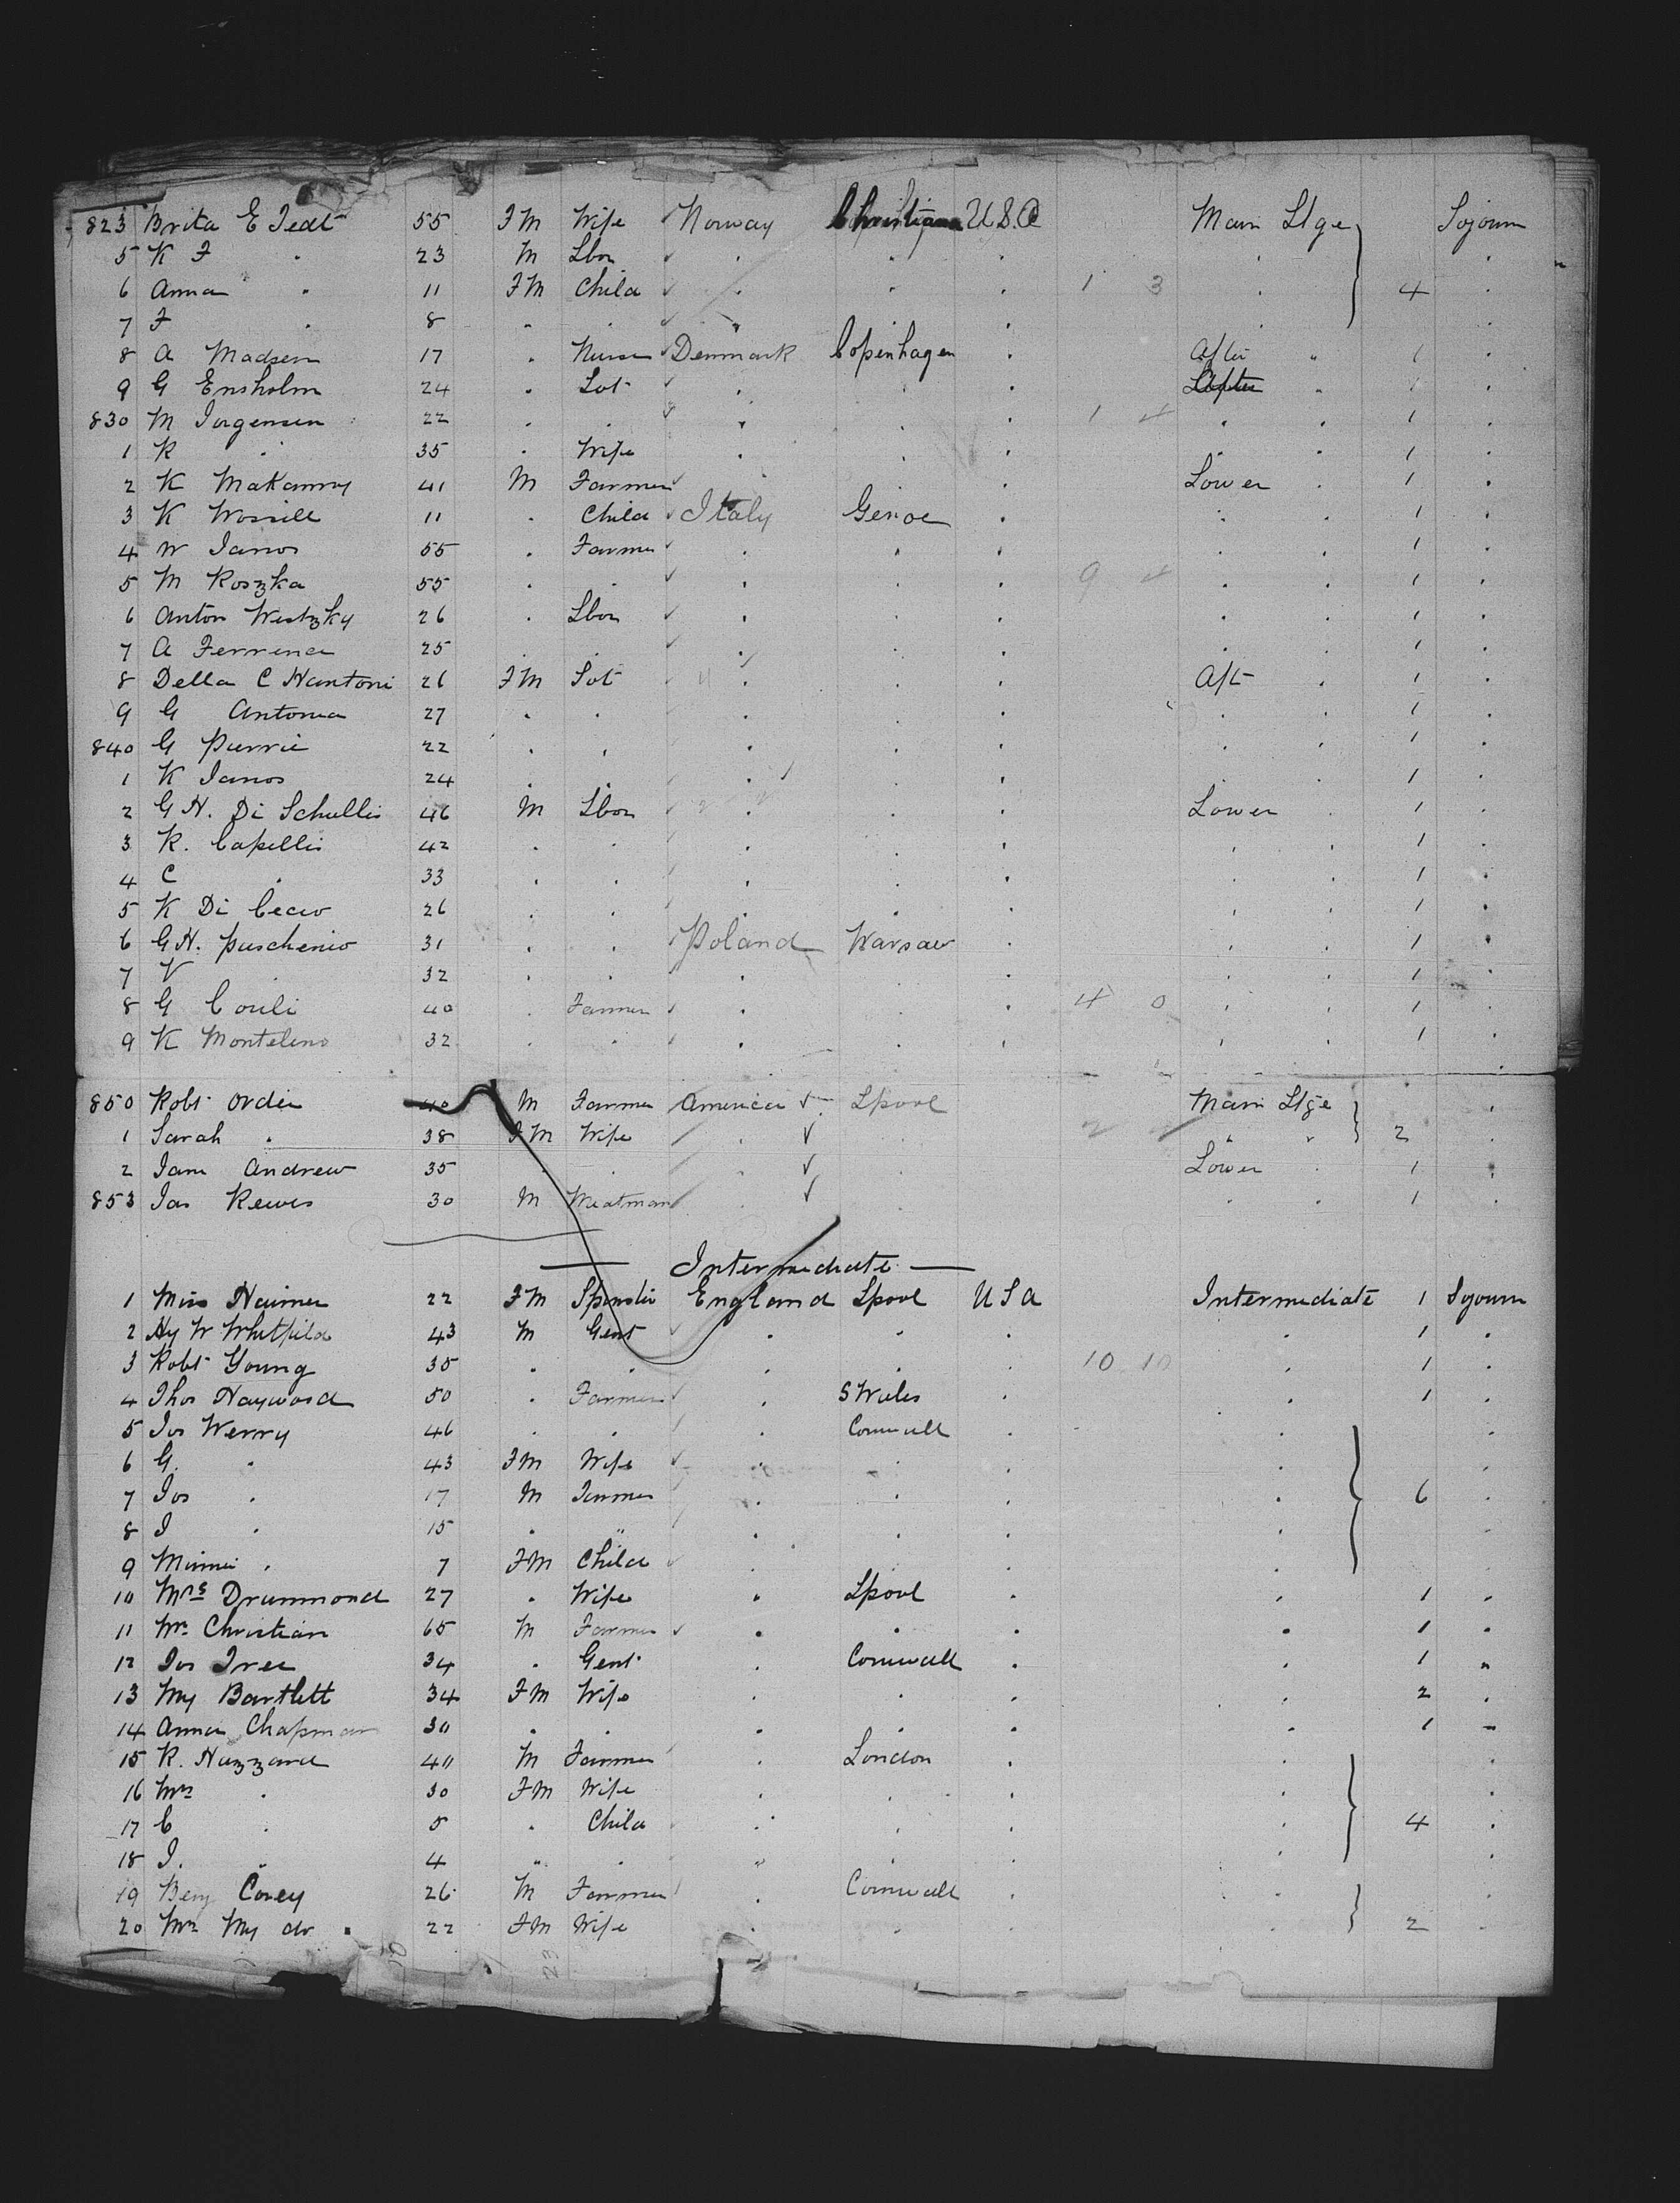 823 Brita E Tedt 55 FM Wife Norway Christiana U.S.A Main Stge Sojourn
5 K F " 23 M Lbor " " " " "
6 Anna " 11 FM Child " " " 1 3 " 4 "
7 F " 8 " " " " " " "
8 A Madsen 17 " Nurse Denmark Copenhagen " After " 1 "
9 G Ensholm 24 " Svt " " " " 1 "
830 M Jorgensen 22 " " " " " 1 4 " " 1 "
1 K " 35 " Wife " " " " " 1 "
2 K Makanny 41 M Farmer " " " Lower " 1 "
3 K 11 " Child Italy Genoe " " " 1 "
4 W Janos 55 " Farmer " " " " " 1 "
5 M Koszka 55 " " " " " 9 4 " " 1 "
6 Anton Westzky 26 " Lbor " " " " " 1 "
7 A Ferrence 25 " " " " " " " 1 "
8 Della C Hantoni 26 FM Svt " " " Aft " 1 "
9 G Antonia 27 " " " " " " " 1 "
840 G Purrie 22 " " " " " " " 1 "
1 K Janos 24 " " " " " " " 1 "
2 G H. Di Schullis 46 M Lbor " " " Lower " 1 "
3 K. Capellis 42 " " " " " " " 1 "
4 C " 33 " " " " " " " 1 "
5 K Di Cecco 26 " " " " " " " 1 "
6 G H. Puschenio 31 " " Poland Warsaw " " " 1 "
7 V " 32 " " " " " " " 1 "
8 G Couli 40 " Farmer " " " 4 0 " " 1 "
9 K Monteleno 32 " " " " " " " 1 "
850 Robt Order 40 M Farmer America Lpool Main Stge "
1 Sarah " 38 FM Wife " " 2 " " 2 "
2 Jane Andrew 35 " " " " Lower " 1 "
853 Jas Rewes 30 M Weatman " " " " 1 "
Intermediate
1 Miss Haimer 22 FM Spinster England Lpool U S A Intermediate 1 Sojourn
2 Hy W Whitfild 43 M Gent " " " " 1 "
3 Robt Young 35 " " " " " 10 10 " 1 "
4 Thos Haywood 50 " Farmer " S Wales " " 1 "
5 Jos Werry 46 " " " Cornwall " " "
6 G. " 43 FM Wife " " " " "
7 Jos " 17 M Farmer " " " " 6 "
8 J " 15 " " " " " " "
9 Minnie " 7 FM Child " " " " "
10 Mrs Drummond 27 " Wife " Lpool " " 1 "
11 Wm Christian 65 M Farmer " " " " 1 "
12 Jos Tree 34 " Gent " Cornwall " " 1 "
13 My Bartlett 34 FM Wife " " " " 2 "
14 Anna Chapman 30 " " " " " " 1 "
15 R. Hazzard 40 M Farmer " London " " "
16 Mrs " 30 FM Wife " " " " "
17 C " 5 " Child " " " " 4 "
18 J. " 4 " " " " " " "
19 Benj Corey 26 M Farmer " Cornwall " " "
20 Mrs My do " 22 FM Wife " " " " 2 "